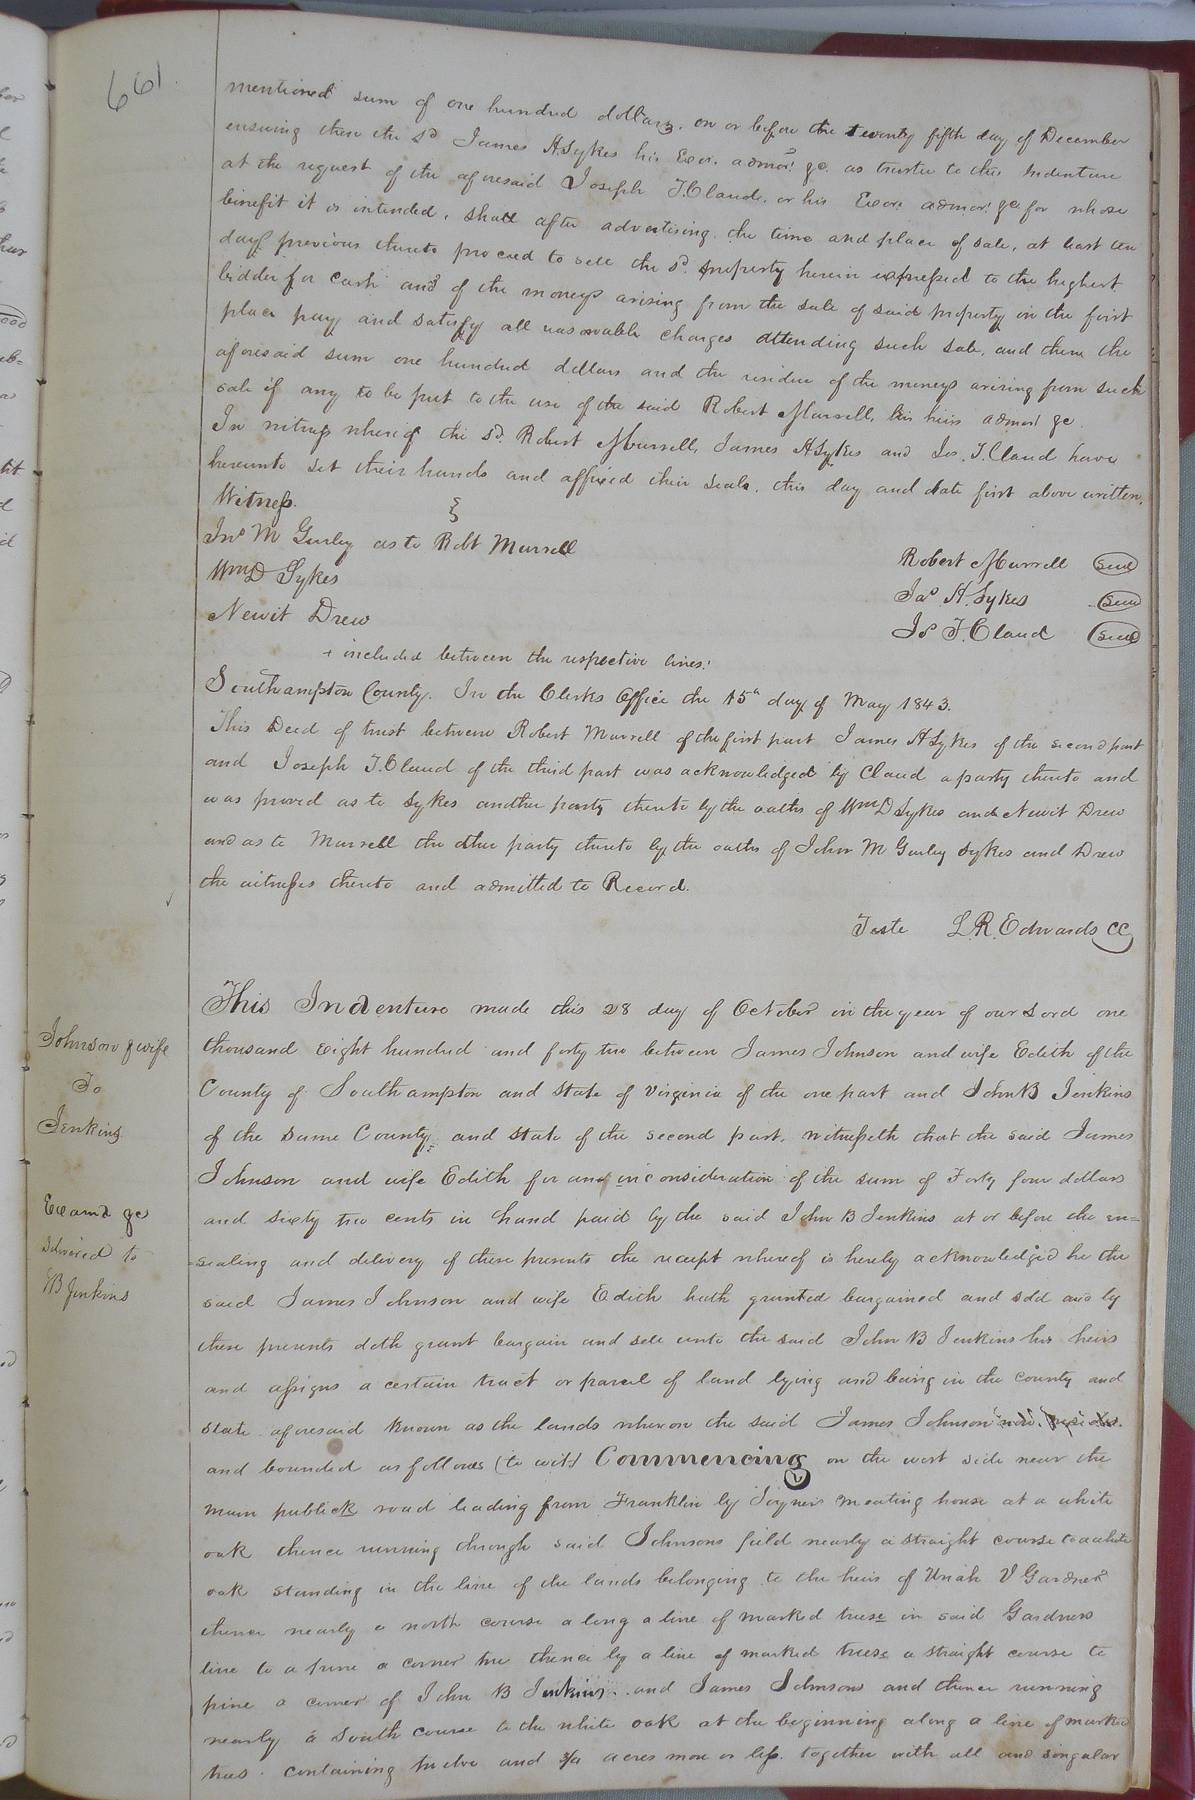 661.
mentioned sum of one hundred dollars, on or before the twenty fifth day of December
ensuing then the sd. James A Sykes his Exor. admor. &c. as trustee to this Indenture
at the request of the aforesaid Joseph T. Claud, or his Exors admors. &c for whose
benefit it is intended, shall after advertising the time and place of sale, at least ten
days previous thereto proceed to sell the sd. property herein expressed to the highest
bidder for cash and of the moneys arising from the sale of said property in the first
place pay and satisfy all reasonable charges attending such sale, and then the
aforesaid sum one hundred dollars and the residue of the moneys arising from such
sale if any to be put to the use of the said Robert Murrell, his heirs admors &c.
In witness whereof the sd. Robert Murrell, James A Sykes and Jos. T. Claud have
hereunto set their hands and affixed their seals, this day and date first above written.
Witness.
Jno M Gurley as to Robt Murrell
Wm D Sykes
Newit Drew
Robert Murrell Seal
Jas A. Sykes Seal
Jos T. Claud Seal
+ included between the respective lines.
Southampton County. In the Clerks Office the 15th day of May 1843.
This Deed of trust between Robert Murrell of the first part James A Sykes of the second part
and Joseph T. Claud of the third part was acknowledged by Claud a party thereto and
was proved as to Sykes another party thereto by the oaths of Wm D Sykes and Newit Drew
and as to Murrell the other party thereto by the oaths of John M Gurley Sykes and Drew
the witnesses thereto and admitted to Record.
Teste L. R. Edwards CC
Johnson & wife
To
Jenkins
Examd &c
delivered to
JB Jenkins
This Indenture made this 28 day of October in the year of our Lord one
thousand eight hundred and forty two between James Johnson and wife Edith of the
County of Southampton and State of Virginia of the one part and John B Jenkins
of the same County, and State of the second part, witnesseth that the said James
Johnson and wife Edith for and in consideration of the sum of Forty four dollars
and sixty two cents in hand paid by the said John B Jenkins at or before the en=
-sealing and delivery of these presents the receipt whereof is hereby acknowledged he the
said James Johnson and wife Edith hath granted bargained and sold and by
these presents doth grant bargain and sell unto the said John B Jenkins his heirs
and assigns a certain tract or parcel of land lying and being in the county and
state aforesaid known as the lands whereon the said James Johnson now resides.
and bounded as follows (to wit) Commencing on the west side near the
main publick road leading from Franklin by Joyners meating house at a white
oak thence running through said Johnsons field nearly a straight course to a white
oak standing in the line of the lands belonging to the heirs of Uriah V Gardner
thence nearly a north course along a line of marked treese in said Gardners
line to a pine a corner tree thence by a line of marked treese a straight course to
pine a corner of John B Jenkins and James Johnsons and thence running
nearly a south course to the white oak at the beginning along a line of marked
trees. containing twelve and 3/4 acres more or less. together with all and singular